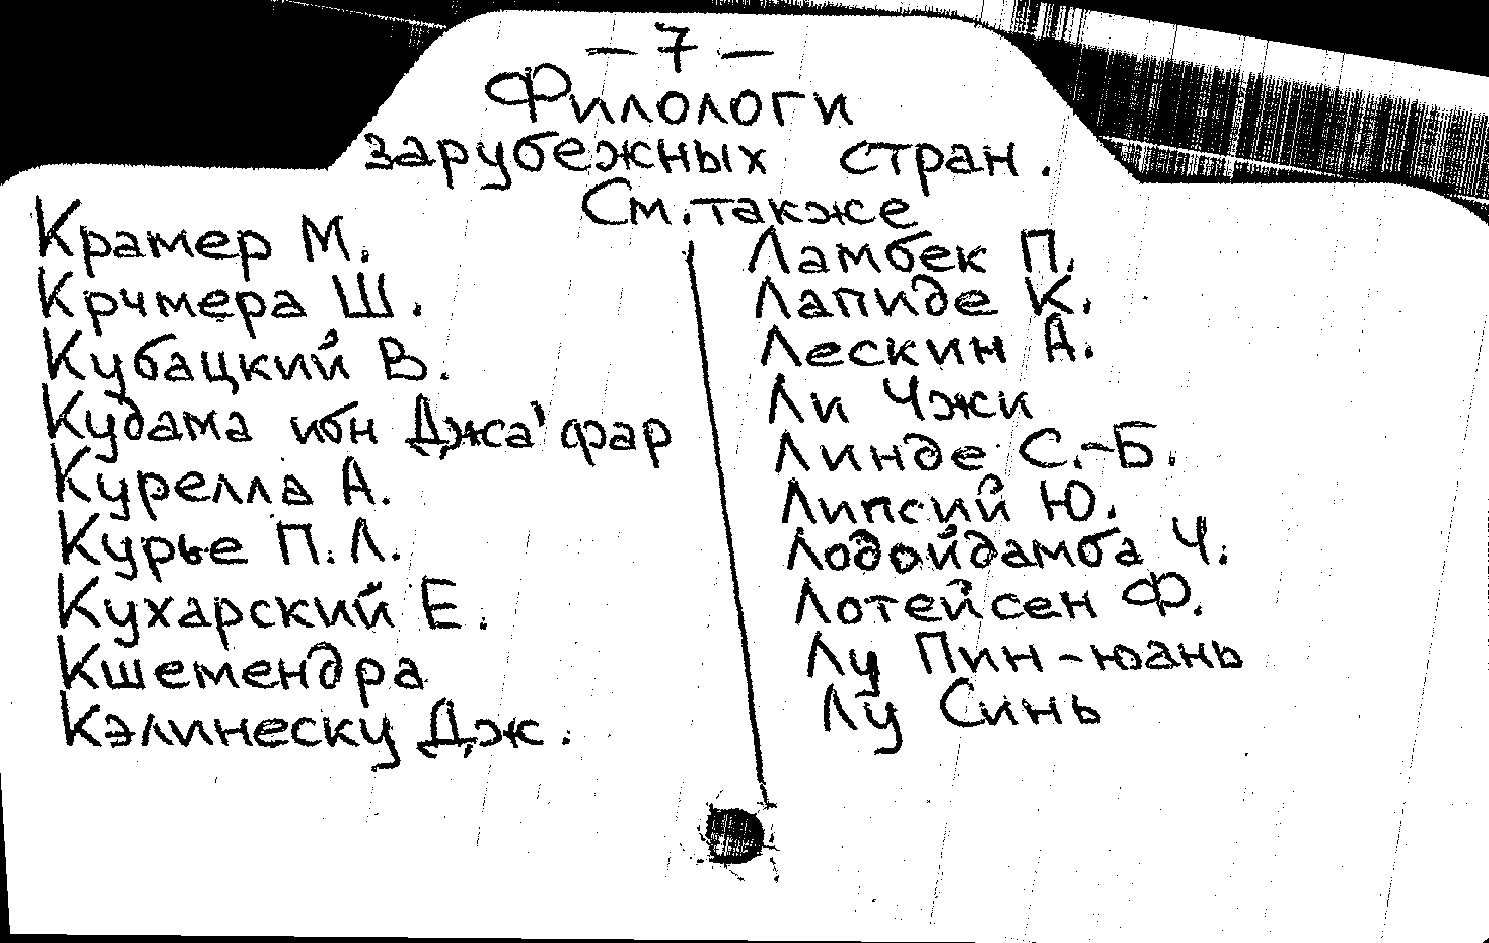 — 7 —
Филологи
зарубежных стран.
См. также
Крамер М.
Крчмера Ш.
Кубацкий В.
Кудама ибн Джа'фар
Курелла А.
Курье П.Л.
Кухарский Е.
Кшемендра
Кэлинеску Дж.
Ламбек П.
Лапиде К.
Лескин А.
Ли Чжи
Линде С.-Б.
Липсий Ю.
Лодойдамба Ч.
Лотейсен Ф.
Лу Пин-юань
Лу Синь